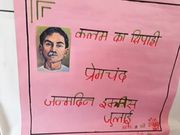 कलम का सिपाही
प्रेमचंद
जन्मदिन इकतीस
जुलाई